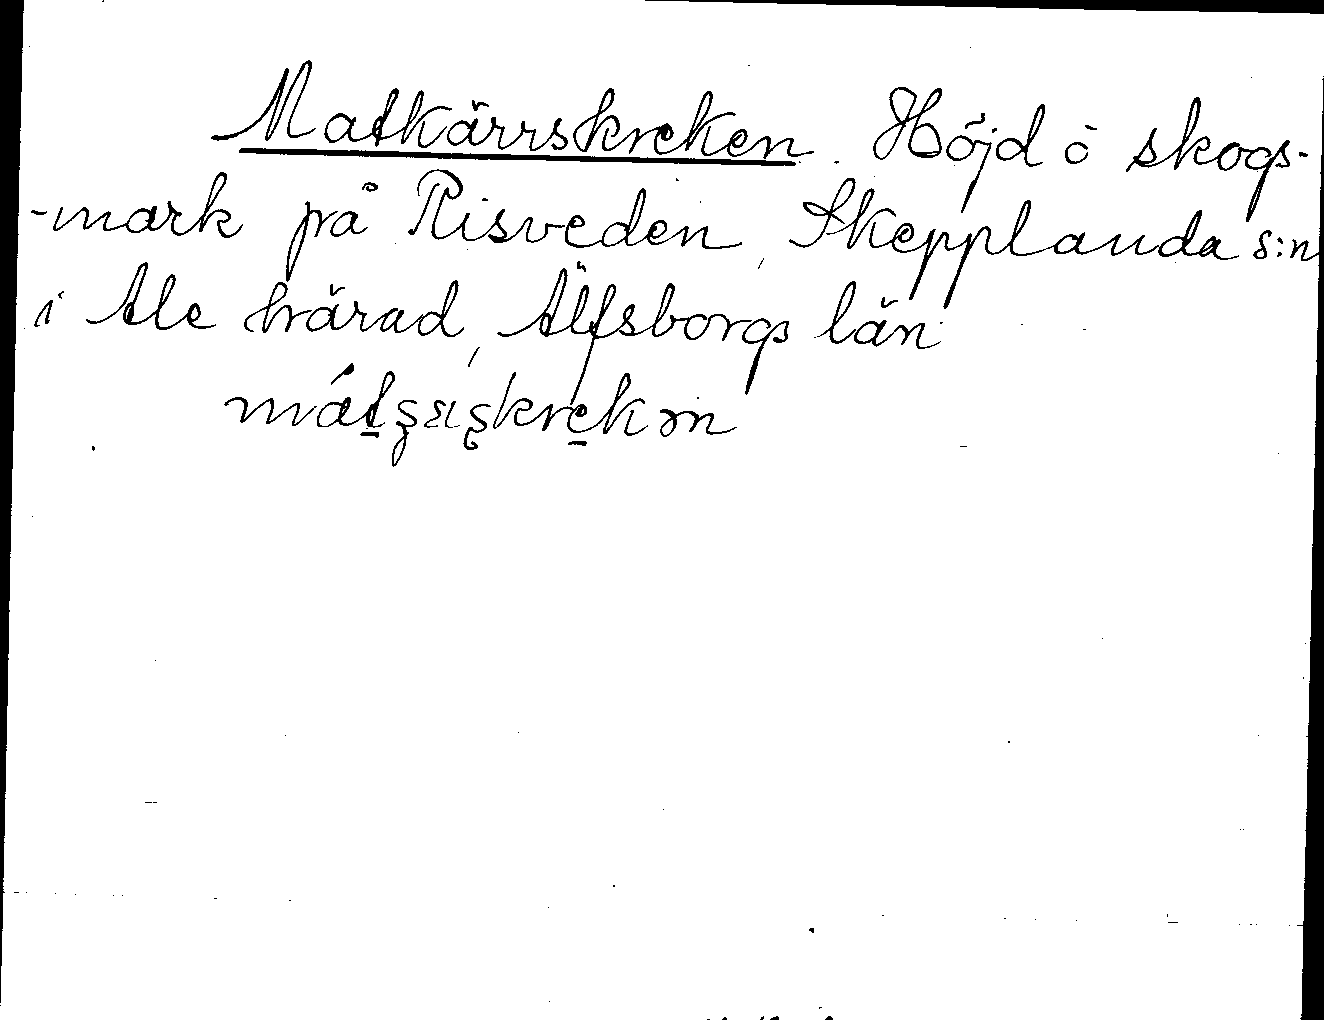 Matkärrskreken. Höjd o skogs-
-mark på Risveden, Skepplanda s:n
i Ale härad, Älfsborgs län.